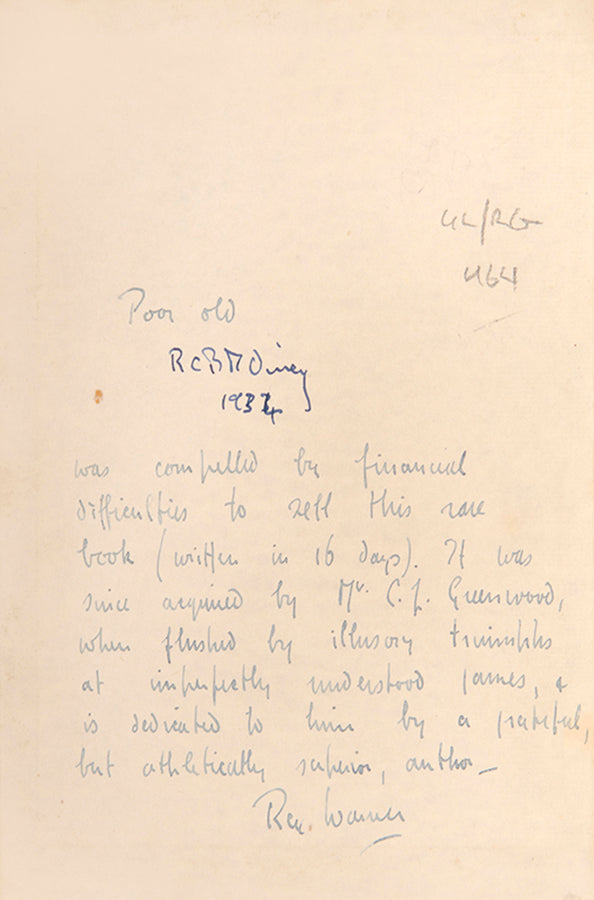 464
Poor old
1934
was compelled by financial
difficulties to sell this rare
book (written in 16 days). It was
since acquired by Mr. C. J. Greenwood,
when flushed by illusory triumphs
at imperfectly understood games, &
is dedicated to him by a grateful,
but athletically superior, author –
Rex Warner